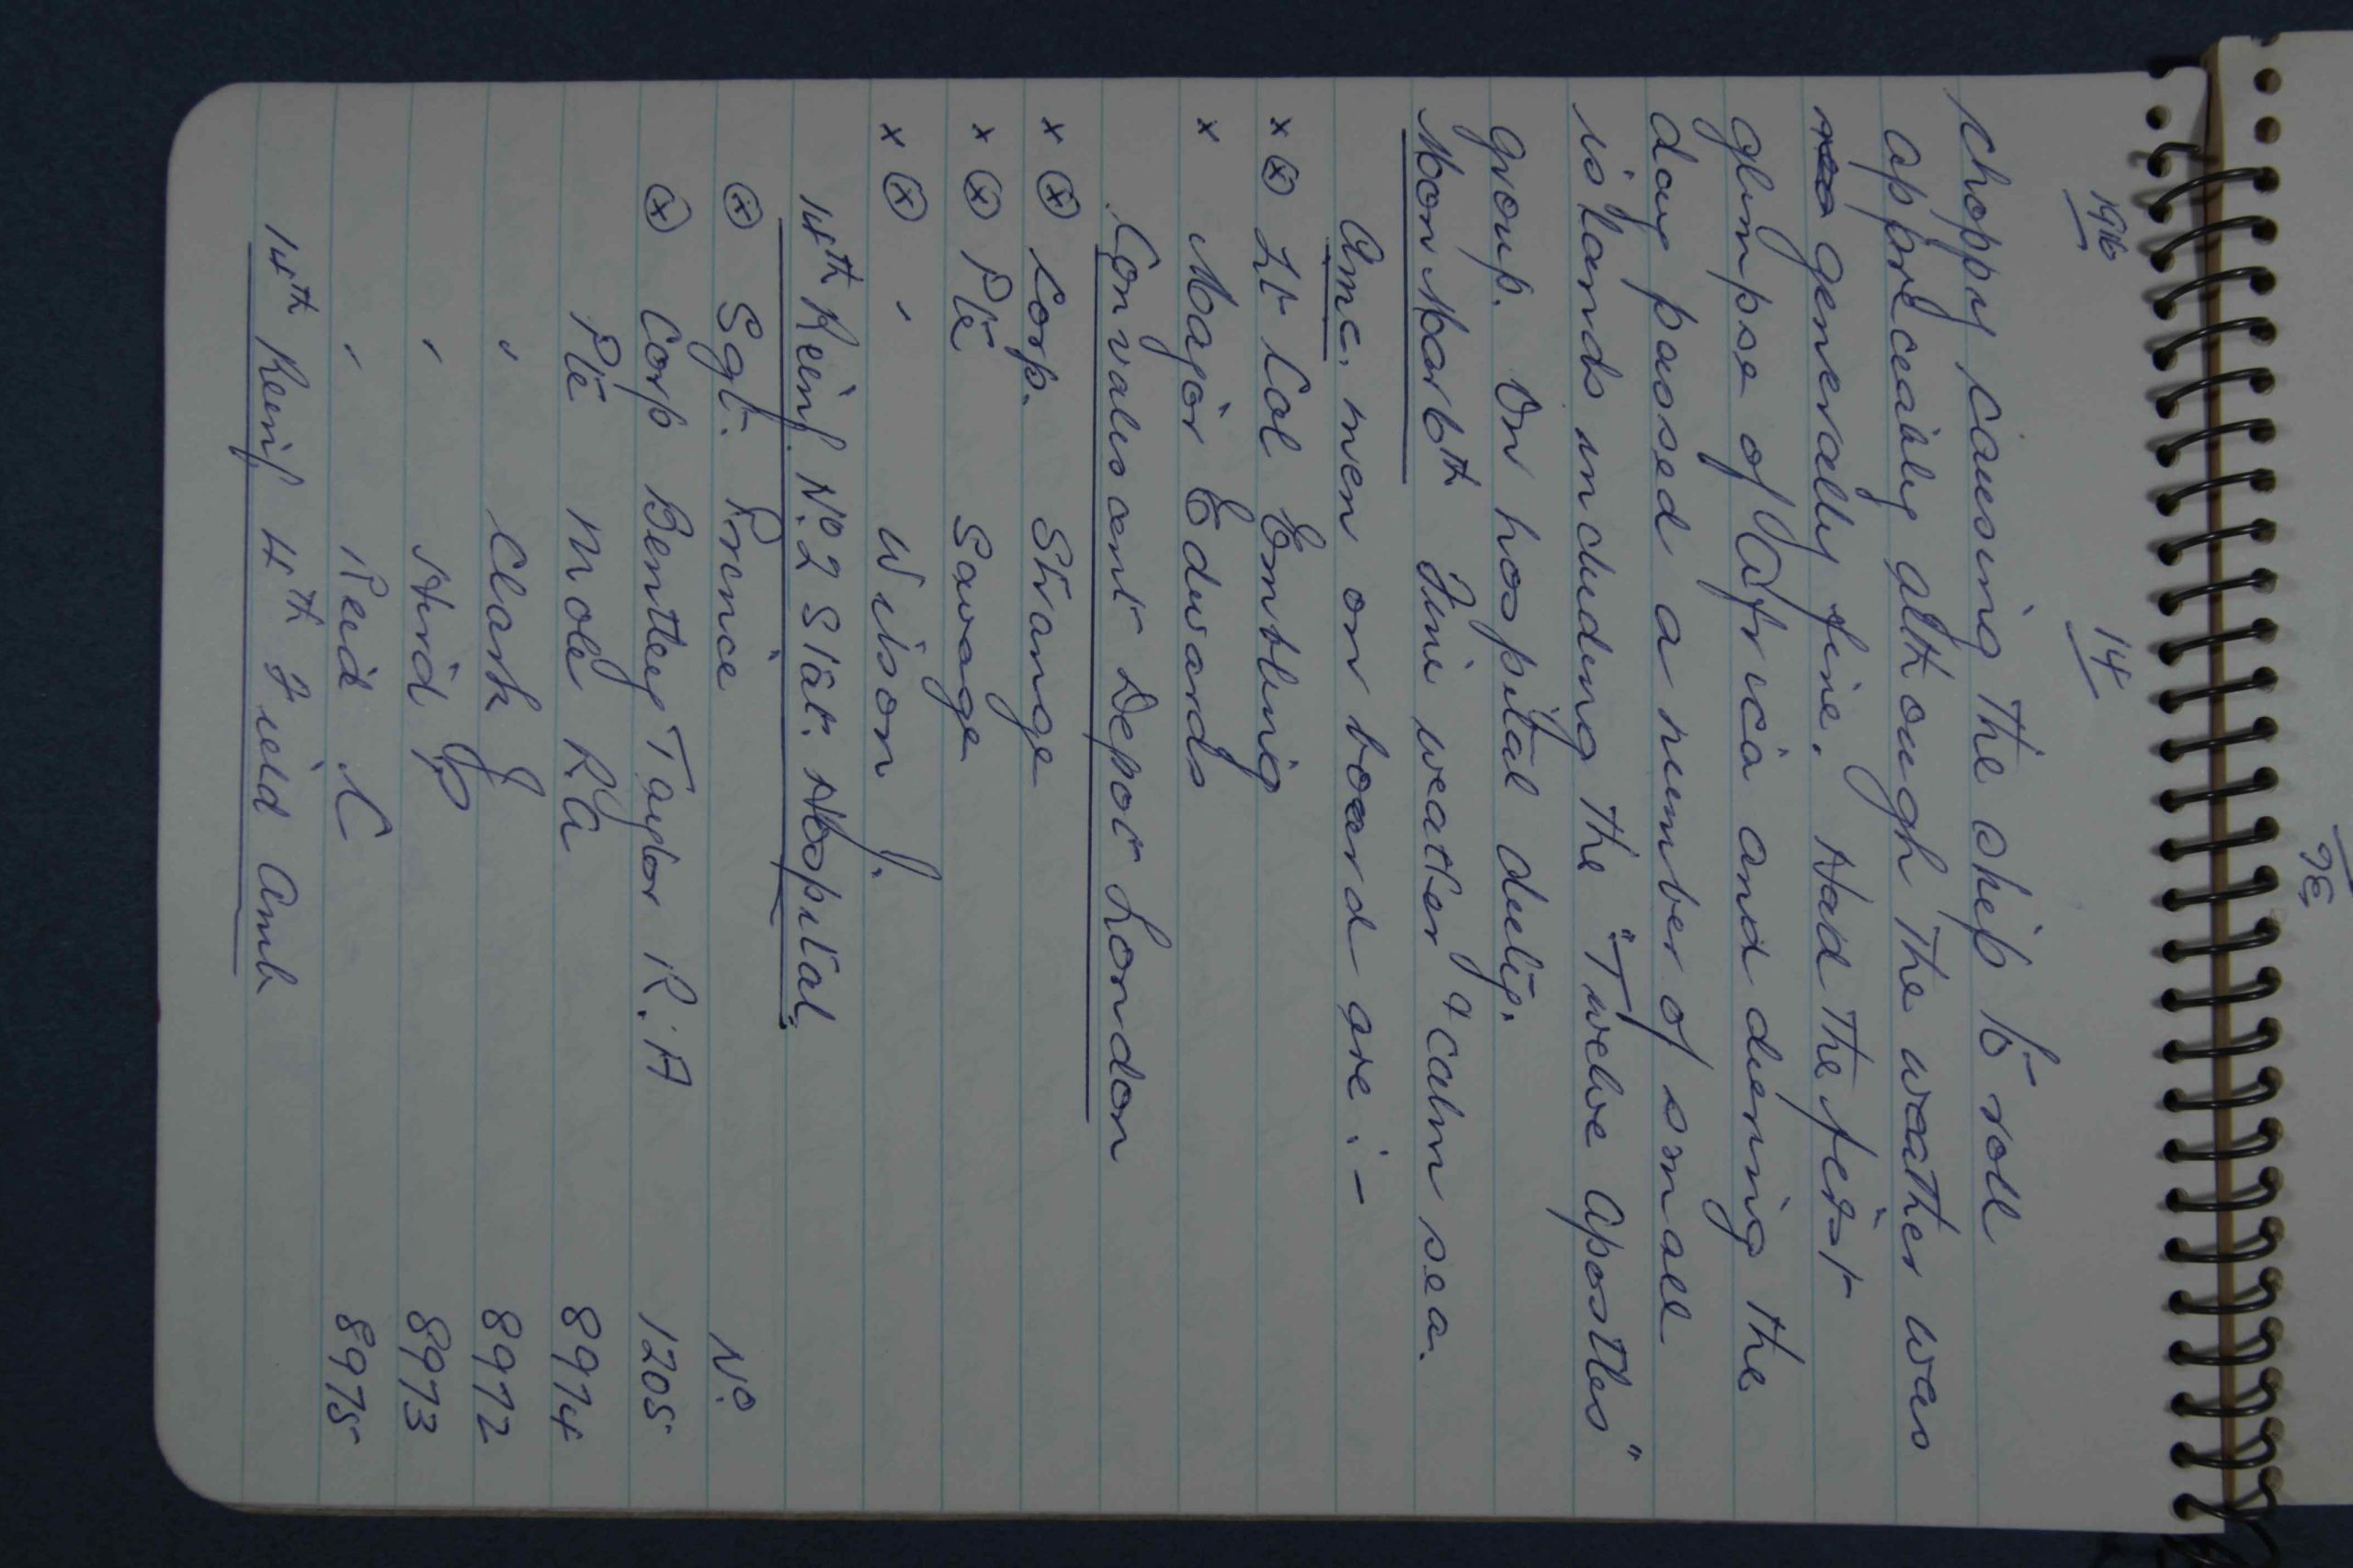 1916 14
choppy causing the ship to roll
appreciably although the weather was
generally fine. Had the first
glimpse of Africa and during the
day passed a number of small
islands including the "Twelve Apostles"
group. On hospital duty.
Mon Mar 6th Fine weather & calm sea.
Amc. men on board are :-
x ⓧ Lt Col Embling
x Major Edwards
Convalescent Depot London
x ⓧ Corp. Strange
x ⓧ Pte Savage
x ⓧ " Wilson J.
14th Reinf. No 2 Stat. Hospital.
ⓧ Sgt. Prince No.
ⓧ Corp Bentley Taylor R.A 1205
Pte Mole RG 8974
" Clark J 8972
" Hird P 8973
" Reid C 8975
14th Reinf 4th Field Amb
36